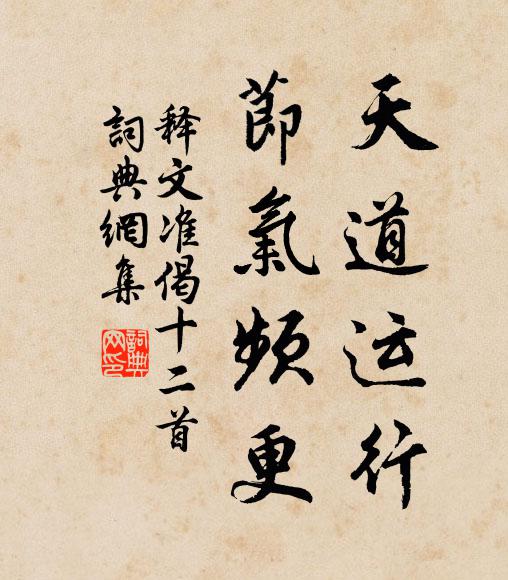 天道运行
節氣頻更
释文准偈十二首
詞典網集
詞典網印